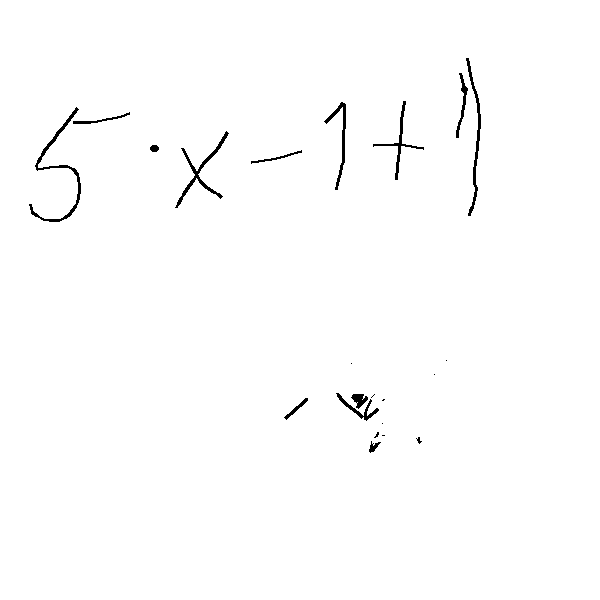 5 · x - 1 + 1